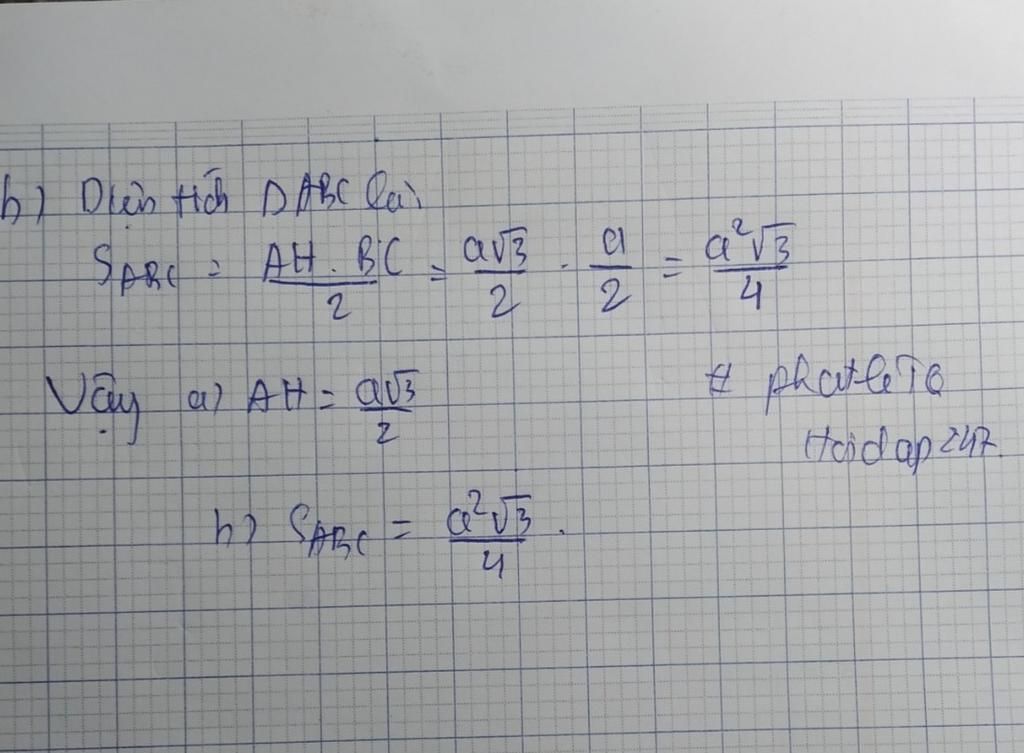 b) Diện tích ΔABC là:
S_ABC = \frac{AH . BC}{2} = \frac{a√3}{2} . \frac{a}{2} = \frac{a²√3}{4}
Vậy a) AH = \frac{a√3}{2}
# phatleT6
Hoidap247.
b) S_ABC = \frac{a²√3}{4} .